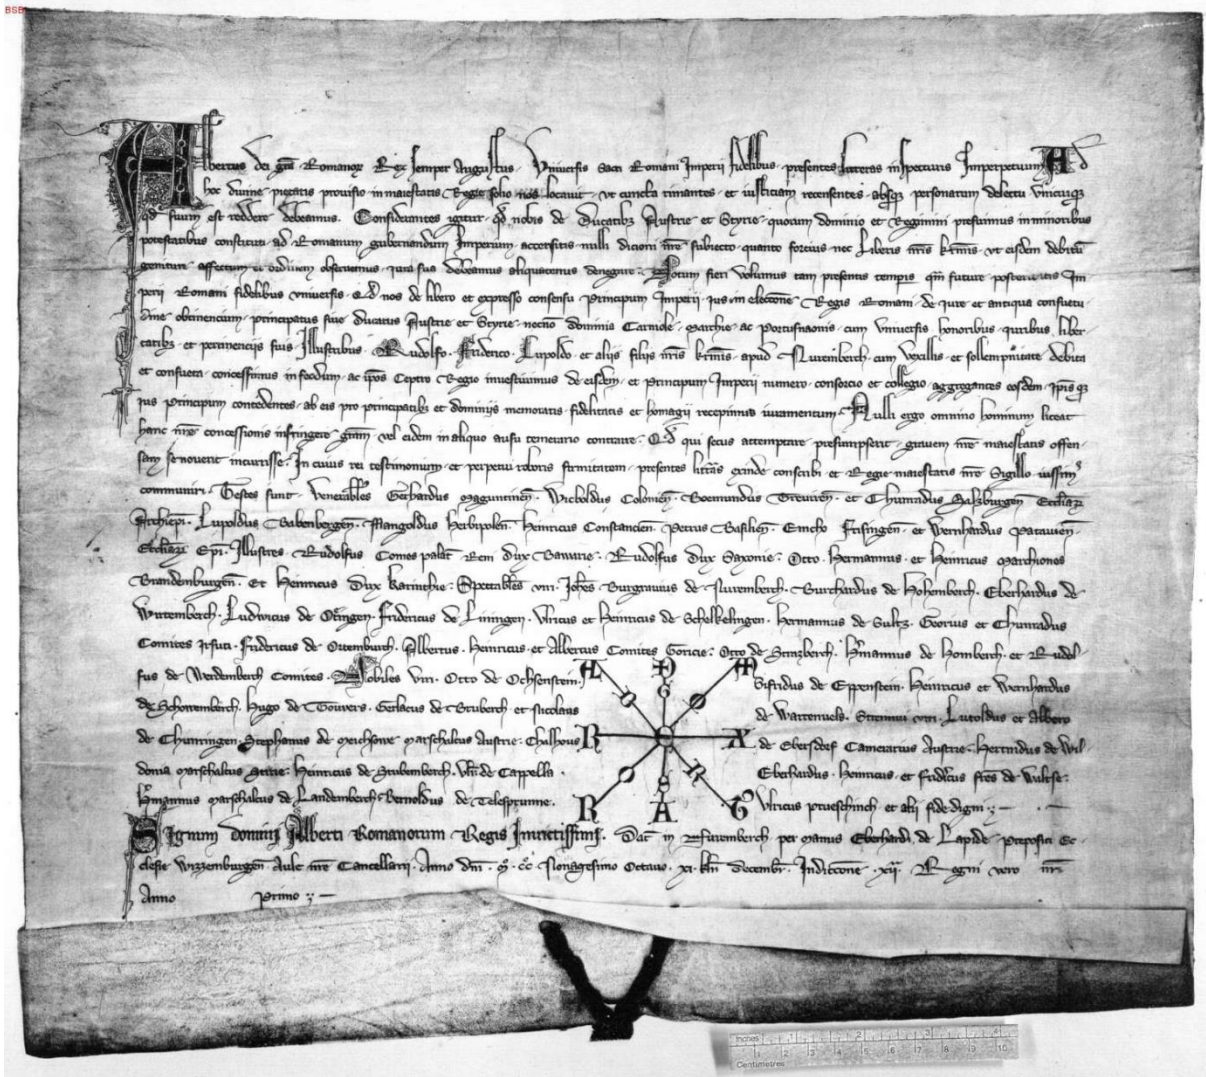 BSB
Albertus dei gra Romanorꝝ Rex semper Augustus. Universis sacri Romani Imperii fidelibus presentes litteras inspecturis Imperpetuum. Ad
hoc divine pietatis provisio in maiestatis Regie solio nos locavit, ut cuncta rimantes et iusticiam recensentes absqꝫ personarum delectu unicuiqꝫ
qd suum est reddere debeamus. Considerantes igitur qd nobis de Ducatibꝫ Austrie et Styrie quorum dominio et Regimini prefuimus in minoribus
potestatibus constituti ad Romanum gubernandum Imperium accersitis nulli dicioni nre subiecto quanto forcius nec liberis nris krimis ut eisdem debitū
geniture affectum et ordinem observemus iura sua debeamus aliquatenus denegare. Notum fieri volumus tam presentis tempis qm future posteritatis Im
perii Romani fidelibus universis. Qd nos de libero et expresso consensu Principum Imperii ius in electione Regis Romani de iure et antiqua consuetu
dine obtinencium principatus sive ducatus Austrie et Styrie necno dominia Carniole Marchie ac Portusnaonis cum universis honoribus iuribus liber
tatibꝫ et pertinencijs suis Illustribus Rudolfo. Friderico. Lupoldo. et alijs filijs nris krimis apud Nuremberch cum vexillis et sollempnitate debita
et consueta concessimus in feodum ac ipos Ceptro Regio investivimus de eisdem et Principum Imperii numero consorcio et collegio aggregantes eosdem ipisqꝫ
ius Principum concedentes ab eis pro principatibꝫ et dominijs memoratis fidelitatis et homagii recepimus iuramentum. Nulli ergo omnino hominum liceat
hanc nre concessionis infringere gram vel eidem in aliquo ausu temerario contraire. Qd qui secus attemptare presumpserit gravem nre maiestatis offen
sam se noverit incurrisse. In cuius rei testimonium et perpetui roboris firmitatem presentes litras exinde conscribi et Regie maiestatis nre Sigillo iussim9
communiri. Testes sunt. Venerabiles Gerhardus Maguntinen. Wicboldus Colonien. Boemundus Treviren. et Chunradus Salzburgen Eccliarꝝ
Archiepi. Lupoldus Babenbergen. Mangoldus Herbipolen. Heinricus Constancien. Petrus Basilien. Emcho Frisingen. et Wernhardus Patavien
Eccliarꝝ Epi. Illustres. Rudolfus Comes palat Reni dux Bawarie. Rudolfus dux Saxonie. Otto. Hermannus. et Heinricus Marchiones
Brandenburgen. Et Heinricus dux Karinthie. Spectabiles viri. Johes Burgravius de Nuremberch. Burchardus de Hohenberch. Eberhardus de
Wirtemberch. Ludwicus de Otingen. Fridericus de Liningen. Ulricus et Heinricus de Schelkelingen. Hermannus de Sultz. Georius et Chunradus
Comites Irsuti. Fridericus de Ortemburch. Albertus. Heinricus. et Albertus Comites Goricie. Otto de Strazberch. Hmannus de Homberch. et Rudol
fus de Werdemberch Comites. Nobiles viri Otto de Ochsenstein. Sifridus de Eppenstein. Heinricus et Wernhardus
de Schowemberch. Hugo de Touvers. Gerlacus de Bruberch et Nicolaus de Wartenvels. Strennui viri. Lutoldus et Albero
de Chunringen. Stephanus de Meichsowe Marschalcus Austrie. Chalhous de Ebersdorf Camerarius Austrie. Hertnidus de Wil
donia Marschalcus Stirie. Heinricus de Stubemberch. Ulri. de Cappella. Eberhardus. Heinricus. et Fridicus fres de Waltse.
Hmannus Marschalcus de Landemberch. Bernoldus de Telesprunne. Ulricus Prueschinch et alii fide digni.
A D M
R X
R A T
Signum domini Alberti Romanorum Regis Invictissimi. Dat in Nuremberch per manus Eberhardi de Lapide Prepositi Ec
clesie Wizzemburgen Aule nre Cancellarii. Anno dni. M. CC. Nonagesimo Octavo. xi. kln decembr. Indictione. xij. Regni vero nri
Anno Primo
Inches 1 2 3 4
1 2 3 4 5 6 7 8 9 10
Centimetres